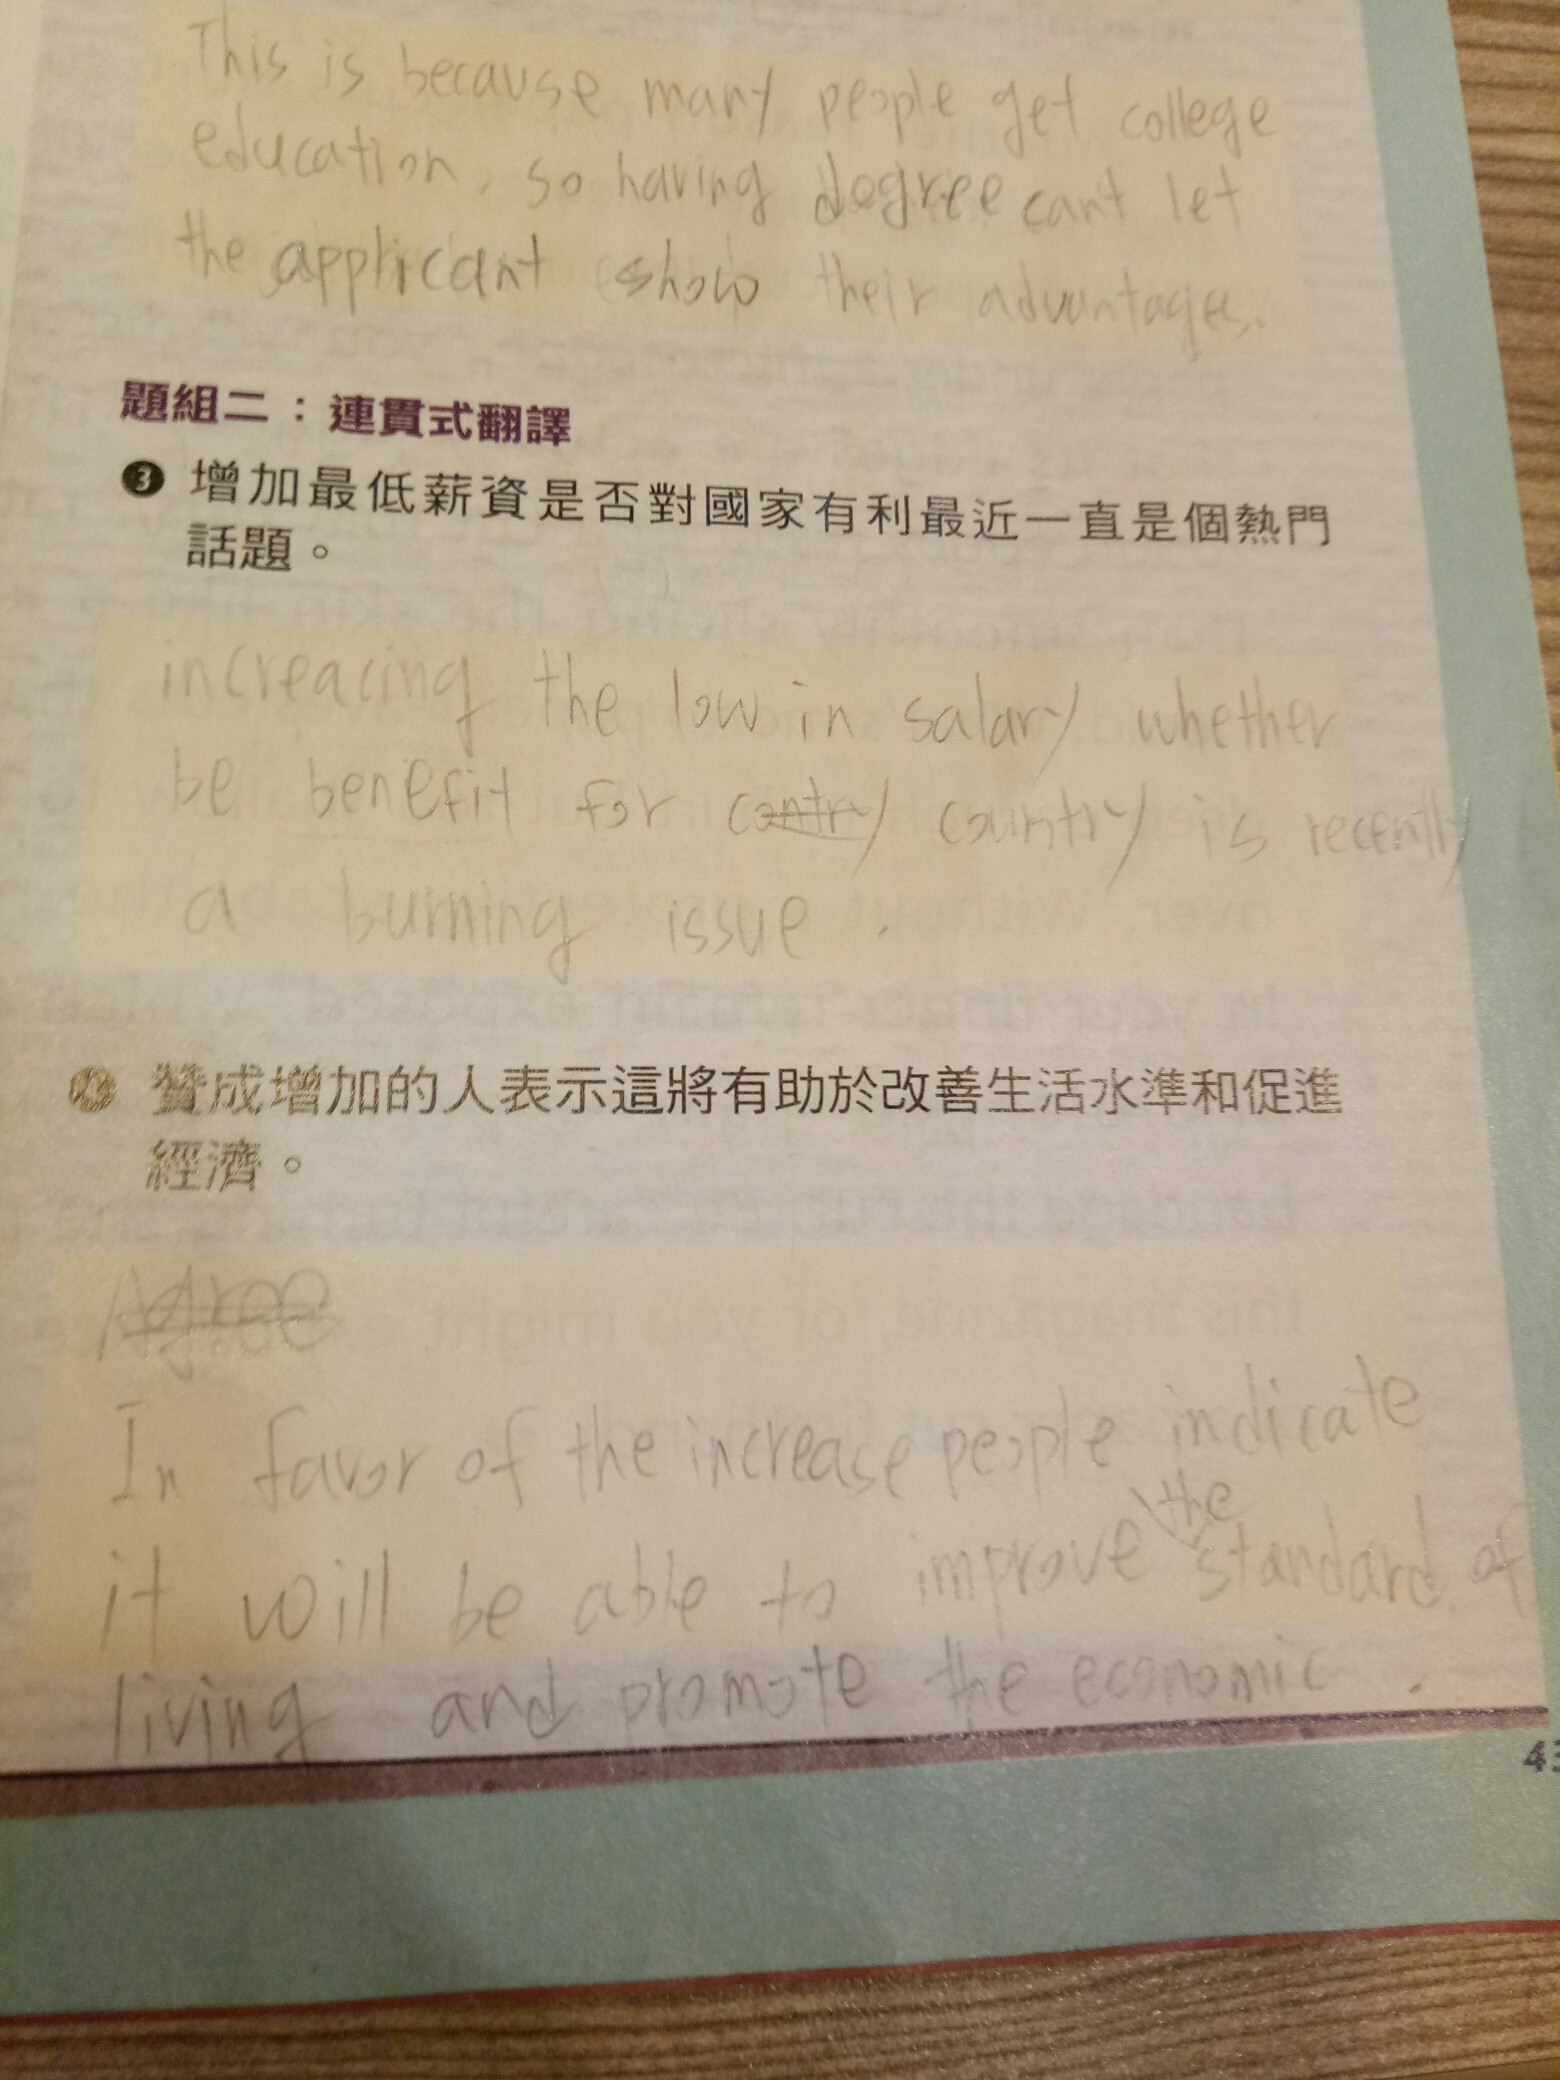 This is because many people get college
education, so having degree cant let
the applicant show their advantages.
題組二：連貫式翻譯
❸ 增加最低薪資是否對國家有利最近一直是個熱門
話題。
increacing the low in salary whether
be benefit for contry country is recently
a burning issue.
❹ 贊成增加的人表示這將有助於改善生活水準和促進
經濟。
Agree
In favor of the increase people indicate
it will be able to improve the standard of
living and promote the economic.